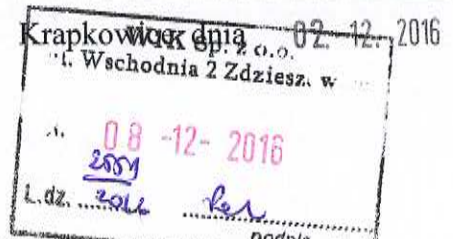 Krapkowice, dnia 02. 12. 2016
WIK Sp. z o.o.
Wschodnia 2 Zdziesz. w
08 -12- 2016
2551
L.dz. 2016
podpis